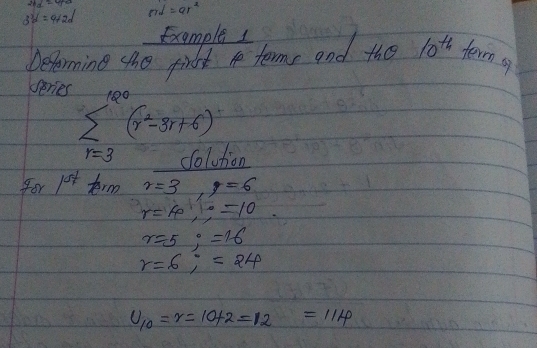 3rd = a+2d
3rd = ar²
Example 1
Determine the first 4 terms and the 10th term of
series
120
∑ (r²-3r+6)
r=3
Solution
For 1st term r=3 , = 6
r=4, ; =10 .
r=5 ; =16
r=6 ; = 24
U₁₀ = r = 10+2 = 12 = 114